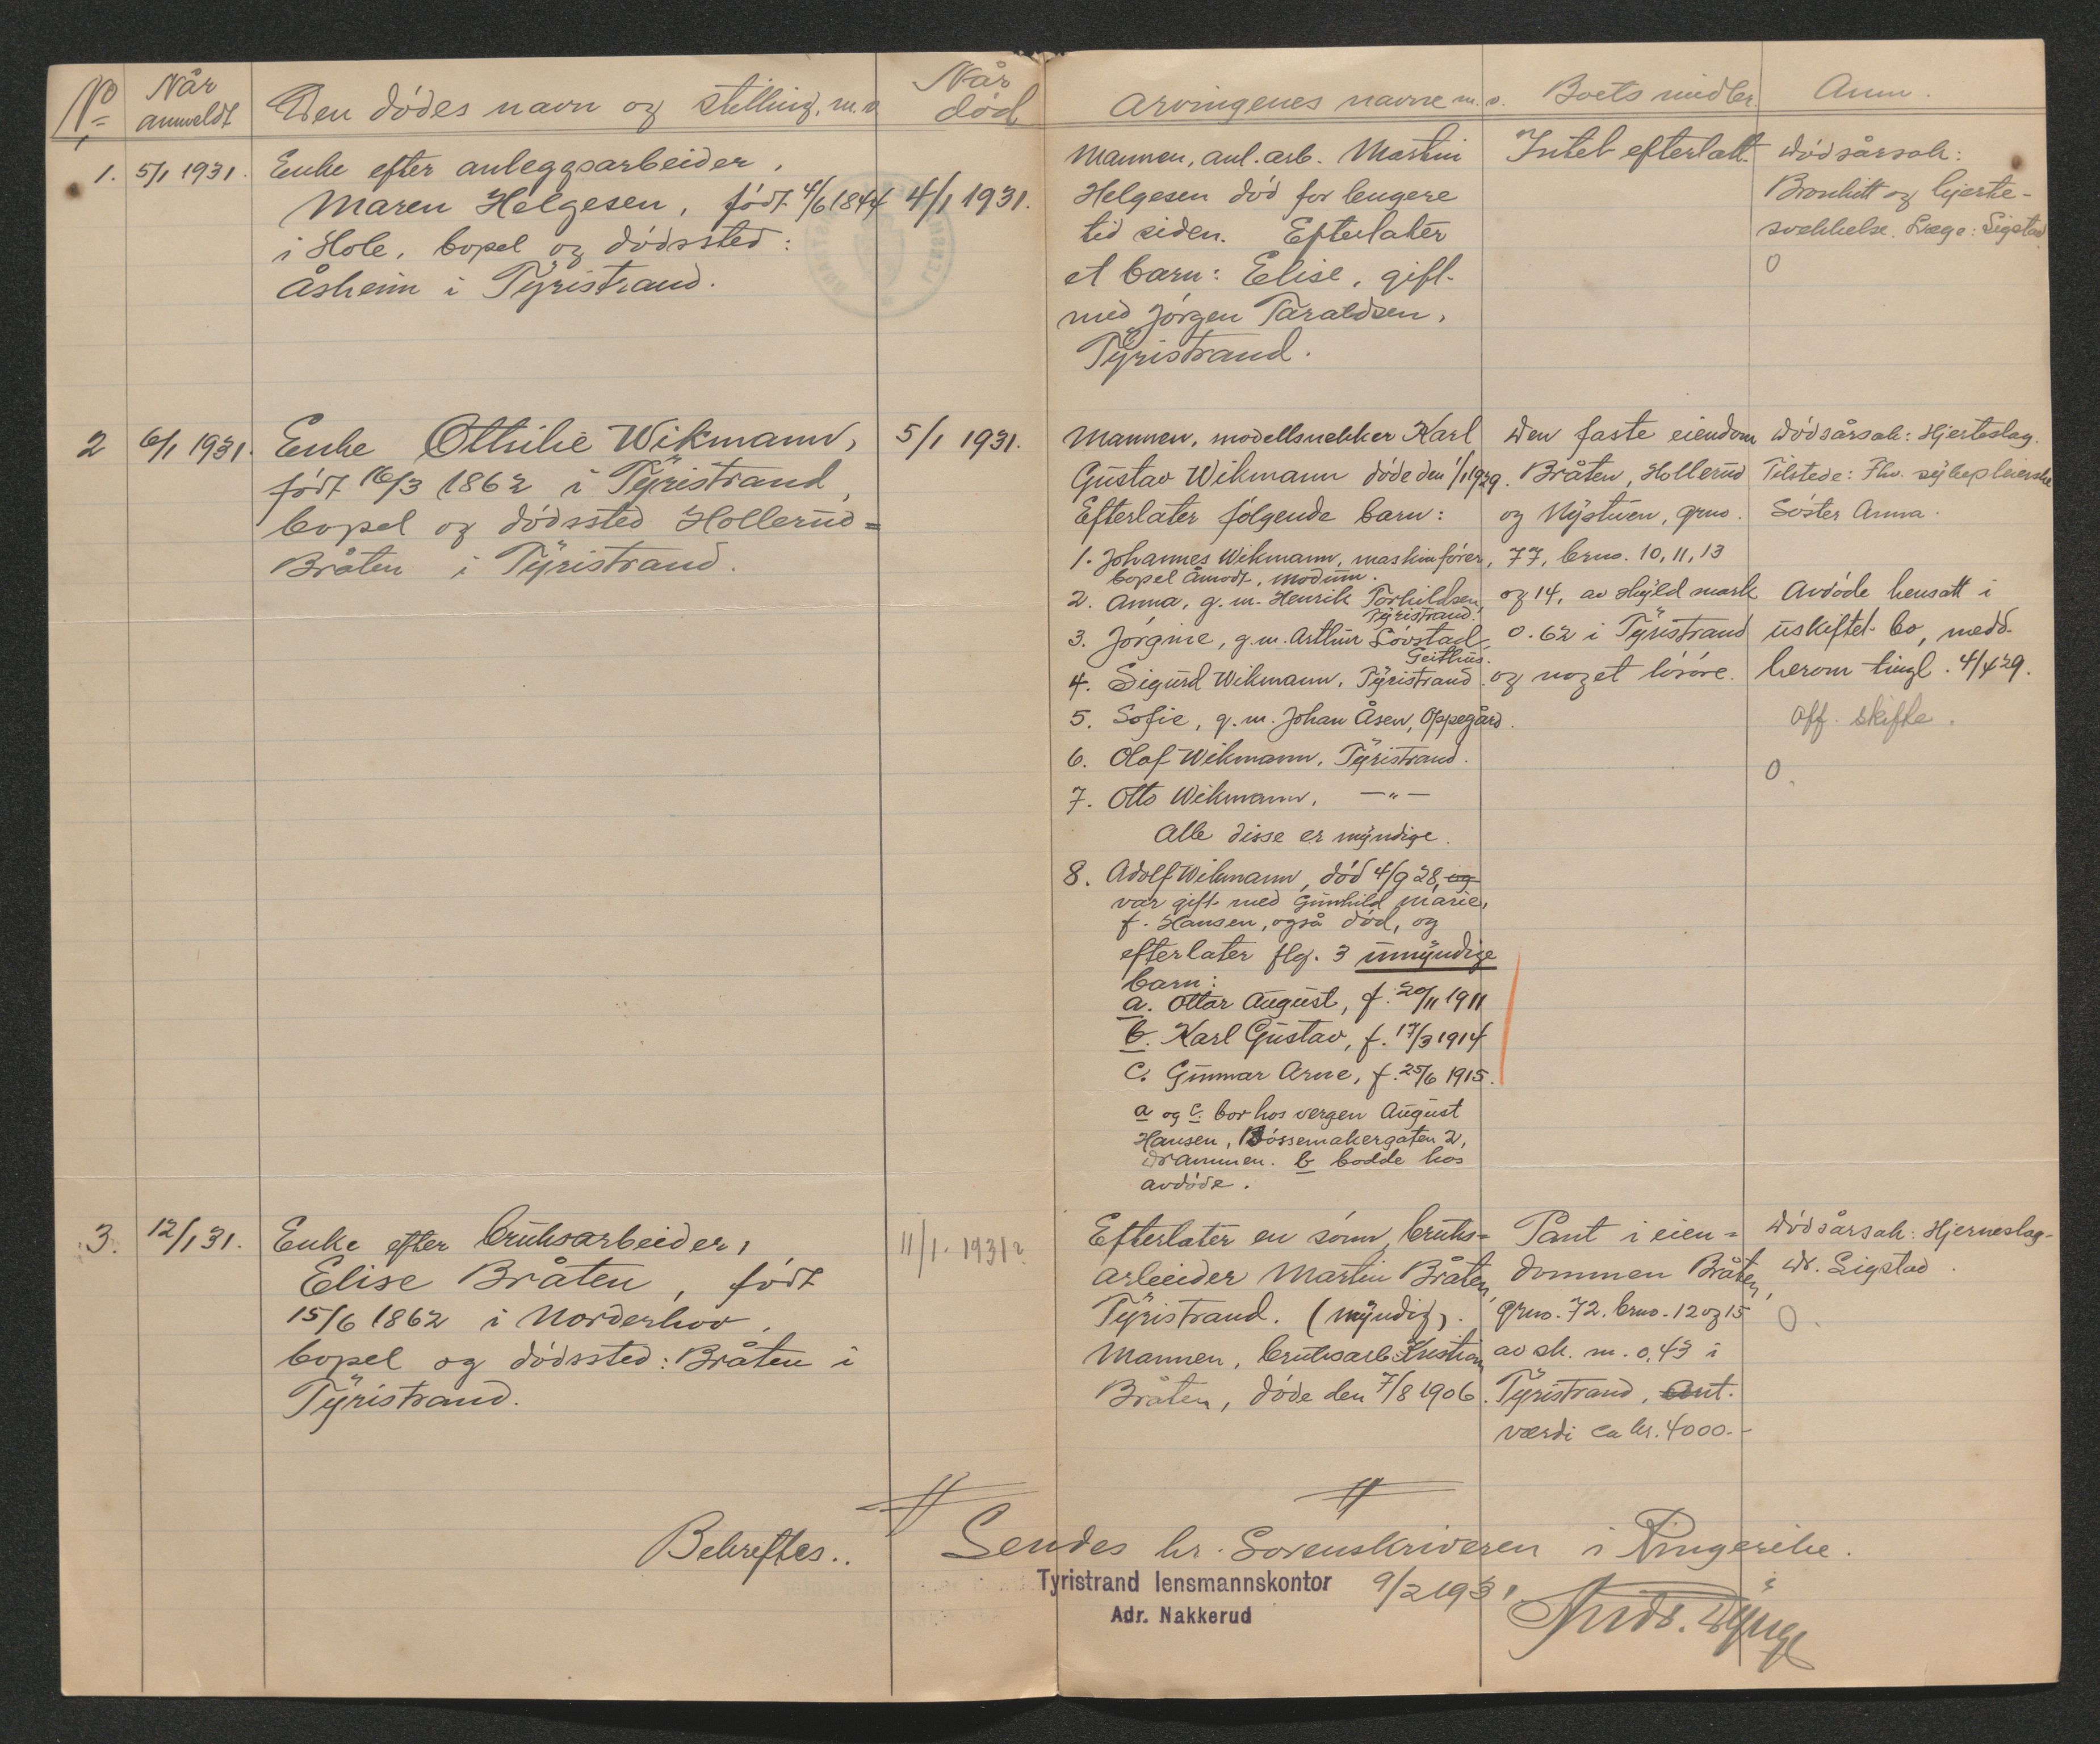 No Når anmeldt Den dødes navn og stilling, m.v. Når død Arvingenes navne m.v. Boets midler Anm.
1. 5/1 1931. Enke efter anleggsarbeider,
Maren Helgesen, født 4/6 1844
i Hole, bopel og dødssted:
Åsheim i Tyristrand.
4/1 1931.
Mannen, anl. arb. Martin
Helgesen død for lengere
tid siden. Efterlater
et barn: Elise, gift
med Jørgen Taraldsen,
Tyristrand.
Intet efterlatt.
Dødsårsak:
Bronkitt og hjerte-
svekkelse. Læge: Sigstad
0
2 6/1 1931. Enke Othilie Wikmann,
født 16/3 1862 i Tyristrand,
bopel og dødssted Hollerud=
Bråten i Tyristrand.
5/1 1931.
Mannen, modellsnekker Karl
Gustav Wikmann døde den 1/1 1929.
Efterlater følgende barn:
1. Johannes Wikmann, maskinfører,
bopel Åmodt, Modum.
2. Anna, g.m. Henrik Torkildsen,
Tyristrand.
3. Jørgine, g.m. Arthur Løvstad,
Geithus.
4. Sigurd Wikmann, Tyristrand.
5. Sofie, g.m. Johan Åsen, Oppegård.
6. Olaf Wikmann, Tyristrand.
7. Otto Wikmann, —"—
Alle disse er myndige.
8. Adolf Wikmann, død 4/9 28, og
var gift med Gunhild Marie,
f. Hansen, også død, og
efterlater flg. 3 umyndige
barn:
a. Ottar August, f. 20/11 1911
b. Karl Gustav, f. 17/3 1914
c. Gunnar Arne, f. 25/6 1915.
a og c. bor hos vergen August
Hansen, Bøssemakergaten 2,
Drammen. b bodde hos
avdøde.
Den faste eiendom
Bråten, Hollerud
og Nystuen, grno.
77, brno. 10, 11, 13
og 14, av skyld mark
0.62 i Tyristrand
og noget løsøre.
Dødsårsak: Hjerteslag.
Tilstede: Fhv. sykepleierske
Søster Anna.
Avdøde hensatt i
uskiftet bo, medd.
herom tingl. 4/4 29.
Off. skifte.
0.
3. 12/1 31. Enke efter bruksarbeider,
Elise Bråten, født
15/6 1862 i Norderhov,
bopel og dødssted: Bråten i
Tyristrand.
11/1. 1931?
Efterlater en sønn, bruks=
arbeider Martin Bråten,
Tyristrand. (myndig).
Mannen, bruksarb. Kristian
Bråten, døde den 7/8 1906.
Pant i eien=
dommen Bråten,
grno. 72, brno. 12 og 15
av sk. m. 0,43 i
Tyristrand, ant.
værdi ca kr. 4000.-
Dødsårsak: Hjerneslag-
Dr. Sigstad.
0.
Bekreftes..
Sendes hr. Sorenskriveren i Ringerike.
Tyristrand lensmannskontor 9/2 1931.
Adr. Nakkerud